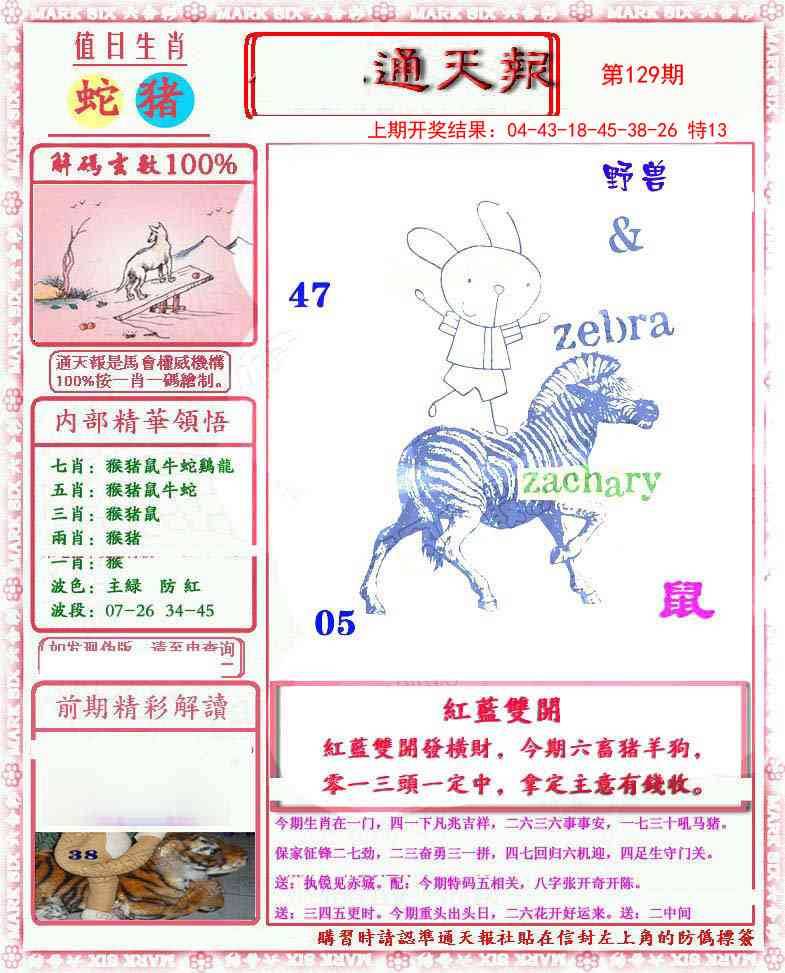 MARK SIX 六合彩
值日生肖
蛇 猪
通天報
第129期
上期开奖结果：04-43-18-45-38-26 特13
解碼玄數100%
通天報是馬會權威機構
100%按一肖一碼繪制。
内部精華領悟
七肖：猴猪鼠牛蛇鷄龍
五肖：猴猪鼠牛蛇
三肖：猴猪鼠
兩肖：猴猪
一肖：猴
波色：主緑 防 紅
波段：07-26 34-45
前期精彩解讀
38
野兽
&
47
zebra
zachary
鼠
05
紅藍雙開
紅藍雙開發横財，今期六畜猪羊狗，
零一三頭一定中，拿定主意有錢收。
今期生肖在一门，四一下凡兆吉祥，二六三六事事安，一七三十吼马猪。
保家征锋二七劲，二三奋勇三一拼，四七回归六机迎，四足生守门关。
送：执镜见赤城。配：今期特码五相关，八字张开奇开陈。
送：三四五更时。今期重头出头日，二六花开好运来。送：二中间
購習時請認準通天報社貼在信封左上角的防偽標簽